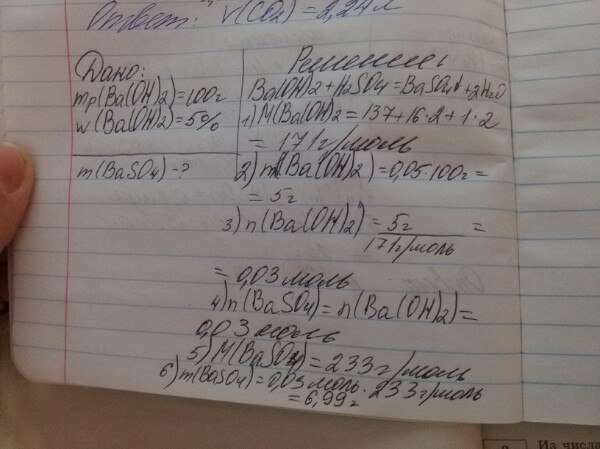 Ответ: V(CO2) = 2,24 л
Дано:
mр(Ba(OH)2)=100г
w(Ba(OH)2)=5%
m(BaSO4)-?
Решение:
Ba(OH)2+H2SO4=BaSO4↓+2H2O
1) M(Ba(OH)2 = 137+16·2+1·2
= 171г/моль
2) m(Ba(OH)2)=0,05·100г=
= 5г
3) n(Ba(OH)2) = 5г =
171г/моль
= 0,03моль
4) n(BaSO4)= n(Ba(OH)2)=
0,03 моль
5) M(BaSO4)= 233г/моль
6) m(BaSO4)=0,03моль·233г/моль
= 6,99г
Из числа